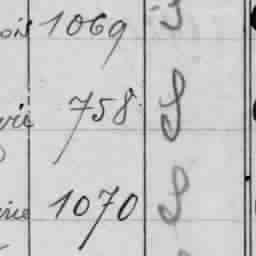 ois 1069 S
vie 758 S
rie 1070 S